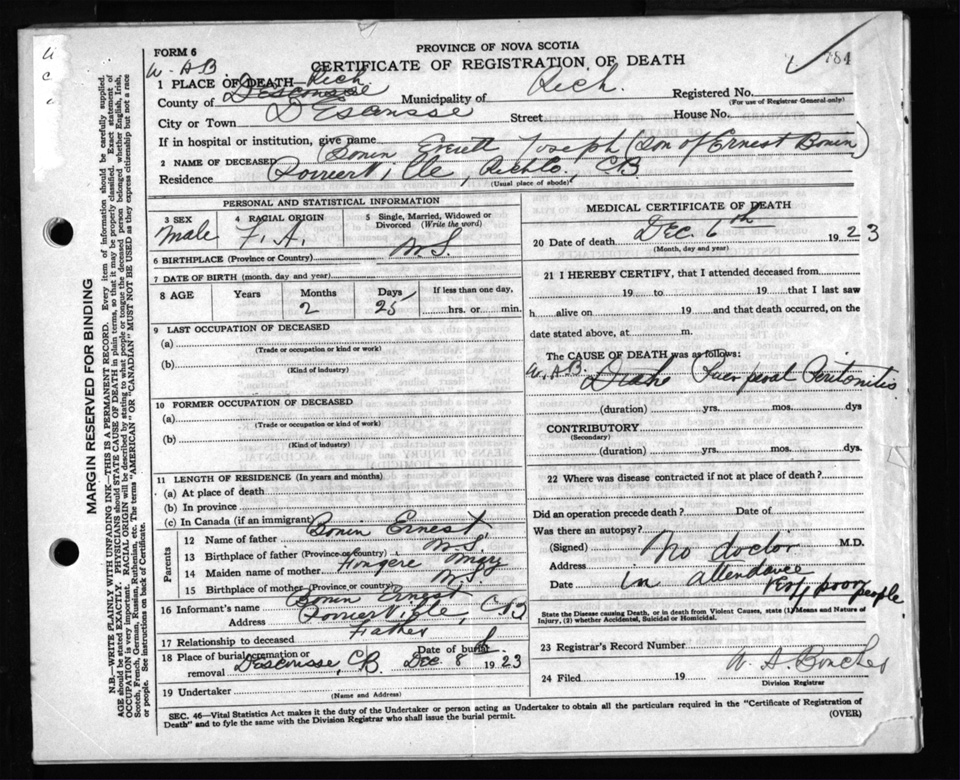 PROVINCE OF NOVA SCOTIA
FORM 6
CERTIFICATE OF REGISTRATION OF DEATH
W. A B.
1 PLACE OF DEATH— Rich.
County of Descousse Municipality of Rich. Registered No.
(For use of Registrar General only)
City or Town D'Escousse Street House No.
If in hospital or institution, give name
2 NAME OF DECEASED Bonin Everett Joseph (Son of Ernest Bonin)
Residence Poirierville, Richco, C.B.
(Usual place of abode)
PERSONAL AND STATISTICAL INFORMATION
3 SEX Male
4 RACIAL ORIGIN F. A.
5 Single, Married, Widowed or Divorced (Write the word)
6 BIRTHPLACE (Province or Country) N.S.
7 DATE OF BIRTH (month, day and year)
8 AGE Years Months 2 Days 25 If less than one day, hrs. or min.
9 LAST OCCUPATION OF DECEASED
(a)
(Trade or occupation or kind or work)
(b)
(Kind of industry)
10 FORMER OCCUPATION OF DECEASED
(a)
(Trade or occupation or kind of work)
(b)
(Kind of industry)
11 LENGTH OF RESIDENCE (In years and months)
(a) At place of death
(b) In province
(c) In Canada (if an immigrant)
Parents
12 Name of father Bonin Ernest
13 Birthplace of father (Province or country) N.S.
14 Maiden name of mother
15 Birthplace of mother (Province or country) N.S.
16 Informant's name Bonin Ernest
Address Poirierville, C.B
17 Relationship to deceased Father
18 Place of burial, cremation or removal Descousse C.B. Date of burial Dec. 8 1923
19 Undertaker
(Name and Address)
MEDICAL CERTIFICATE OF DEATH
20 Date of death Dec. 6th 1923
(Month, day and year)
21 I HEREBY CERTIFY, that I attended deceased from
19 to 19 that I last saw
h alive on 19 and that death occurred, on the
date stated above, at m.
The CAUSE OF DEATH was as follows:
W. A B. Puerperal Peritonitis
(duration) yrs. mos. dys
CONTRIBUTORY
(Secondary)
(duration) yrs. mos. dys.
22 Where was disease contracted if not at place of death?
Did an operation precede death? Date of
Was there an autopsy?
(Signed) No doctor M.D.
Address in attendance
Date very poor people
State the Disease causing Death, or in death from Violent Causes, state (1) Means and Nature of
Injury, (2) whether Accidental, Suicidal or Homicidal.
23 Registrar's Record Number
24 Filed 19 W. A Boucher
Division Registrar
SEC. 46—Vital Statistics Act makes it the duty of the Undertaker or person acting as Undertaker to obtain all the particulars required in the "Certificate of Registration of
Death" and to fyle the same with the Division Registrar who shall issue the burial permit. (OVER)
MARGIN RESERVED FOR BINDING
N.B.—WRITE PLAINLY WITH UNFADING INK—THIS IS A PERMANENT RECORD. Every item of information should be carefully supplied.
AGE should be stated EXACTLY. PHYSICIANS should STATE CAUSE OF DEATH in plain terms, so that it may be properly classified. Exact statement of
OCCUPATION is very important. RACIAL ORIGIN will be described by stating to what people or tongue the deceased person belonged whether English, Irish,
Scotch, French, German, Russian, Ruthenian, etc. The terms "AMERICAN" or "CANADIAN" MUST NOT BE USED as they express citizenship but not a race
or people. See instructions on back of Certificate.